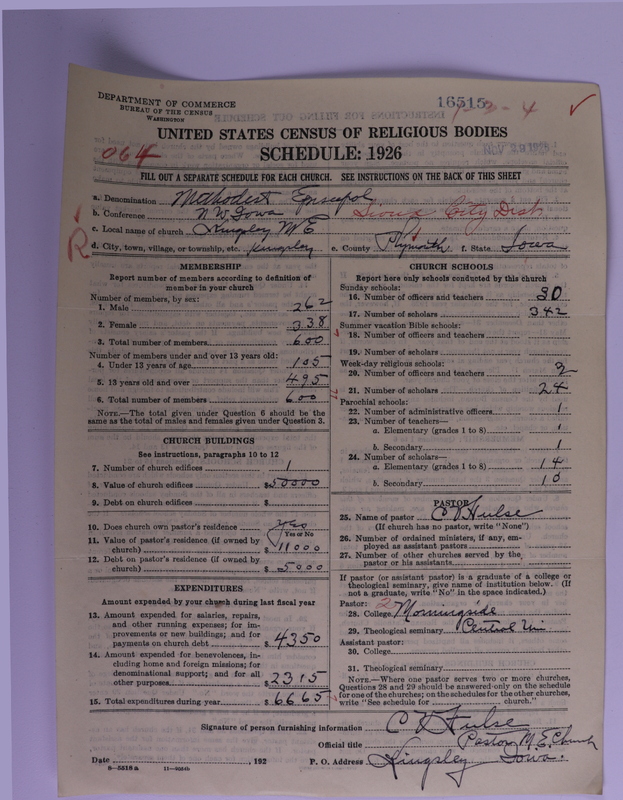 DEPARTMENT OF COMMERCE
BUREAU OF THE CENSUS
WASHINGTON
16515
1-2-4
UNITED STATES CENSUS OF RELIGIOUS BODIES
NOV 29 1928
064
SCHEDULE: 1926
FILL OUT A SEPARATE SCHEDULE FOR EACH CHURCH. SEE INSTRUCTIONS ON THE BACK OF THIS SHEET
a. Denomination Methodest Episcopol
b. Conference N W. Iowa Sioux City Dist
c. Local name of church Kingsley M E
R
d. City, town, village, or township, etc. Kingsley e. County Plymouth f. State Iowa
MEMBERSHIP
Report number of members according to definition of
member in your church
Number of members, by sex:
1. Male 262
2. Female 338
3. Total number of members 600
Number of members under and over 13 years old:
4. Under 13 years of age 105
5. 13 years old and over 495
6. Total number of members 600
NOTE.—The total given under Question 6 should be the
same as the total of males and females given under Question 3.
CHURCH BUILDINGS
See instructions, paragraphs 10 to 12
7. Number of church edifices 1
8. Value of church edifices $50000
9. Debt on church edifices $
10. Does church own pastor's residence yes
Yes or No
11. Value of pastor's residence (if owned by
church) $11000
12. Debt on pastor's residence (if owned by
church) $5000
EXPENDITURES
Amount expended by your church during last fiscal year
13. Amount expended for salaries, repairs,
and other running expenses; for im-
provements or new buildings; and for
payments on church debt $4350
14. Amount expended for benevolences, in-
cluding home and foreign missions; for
denominational support; and for all
other purposes $2315
15. Total expenditures during year $6665
CHURCH SCHOOLS
Report here only schools conducted by this church
Sunday schools:
16. Number of officers and teachers 30
17. Number of scholars 342
Summer vacation Bible schools:
18. Number of officers and teachers
19. Number of scholars
Week-day religious schools:
20. Number of officers and teachers 2
21. Number of scholars 24
Parochial schools:
22. Number of administrative officers 1
23. Number of teachers—
a. Elementary (grades 1 to 8) 1
b. Secondary 1
24. Number of scholars—
a. Elementary (grades 1 to 8) 14
b. Secondary 10
PASTOR
25. Name of pastor C V Hulse
(If church has no pastor, write "None")
26. Number of ordained ministers, if any, em-
ployed as assistant pastors
27. Number of other churches served by the
pastor or his assistants
If pastor (or assistant pastor) is a graduate of a college or
theological seminary, give name of institution below. (If
not a graduate, write "No" in the space indicated.)
Pastor: 2
28. College Morningside
29. Theological seminary Central Uni
Assistant pastor:
30. College
31. Theological seminary
NOTE.—Where one pastor serves two or more churches,
Questions 28 and 29 should be answered only on the schedule
for one of the churches; on the schedules for the other churches,
write "See schedule for church."
Signature of person furnishing information C V Hulse
Official title Pastor M.E. Church
Date , 192 P. O. Address Kingsley Iowa.
8—5518a 11—9054b